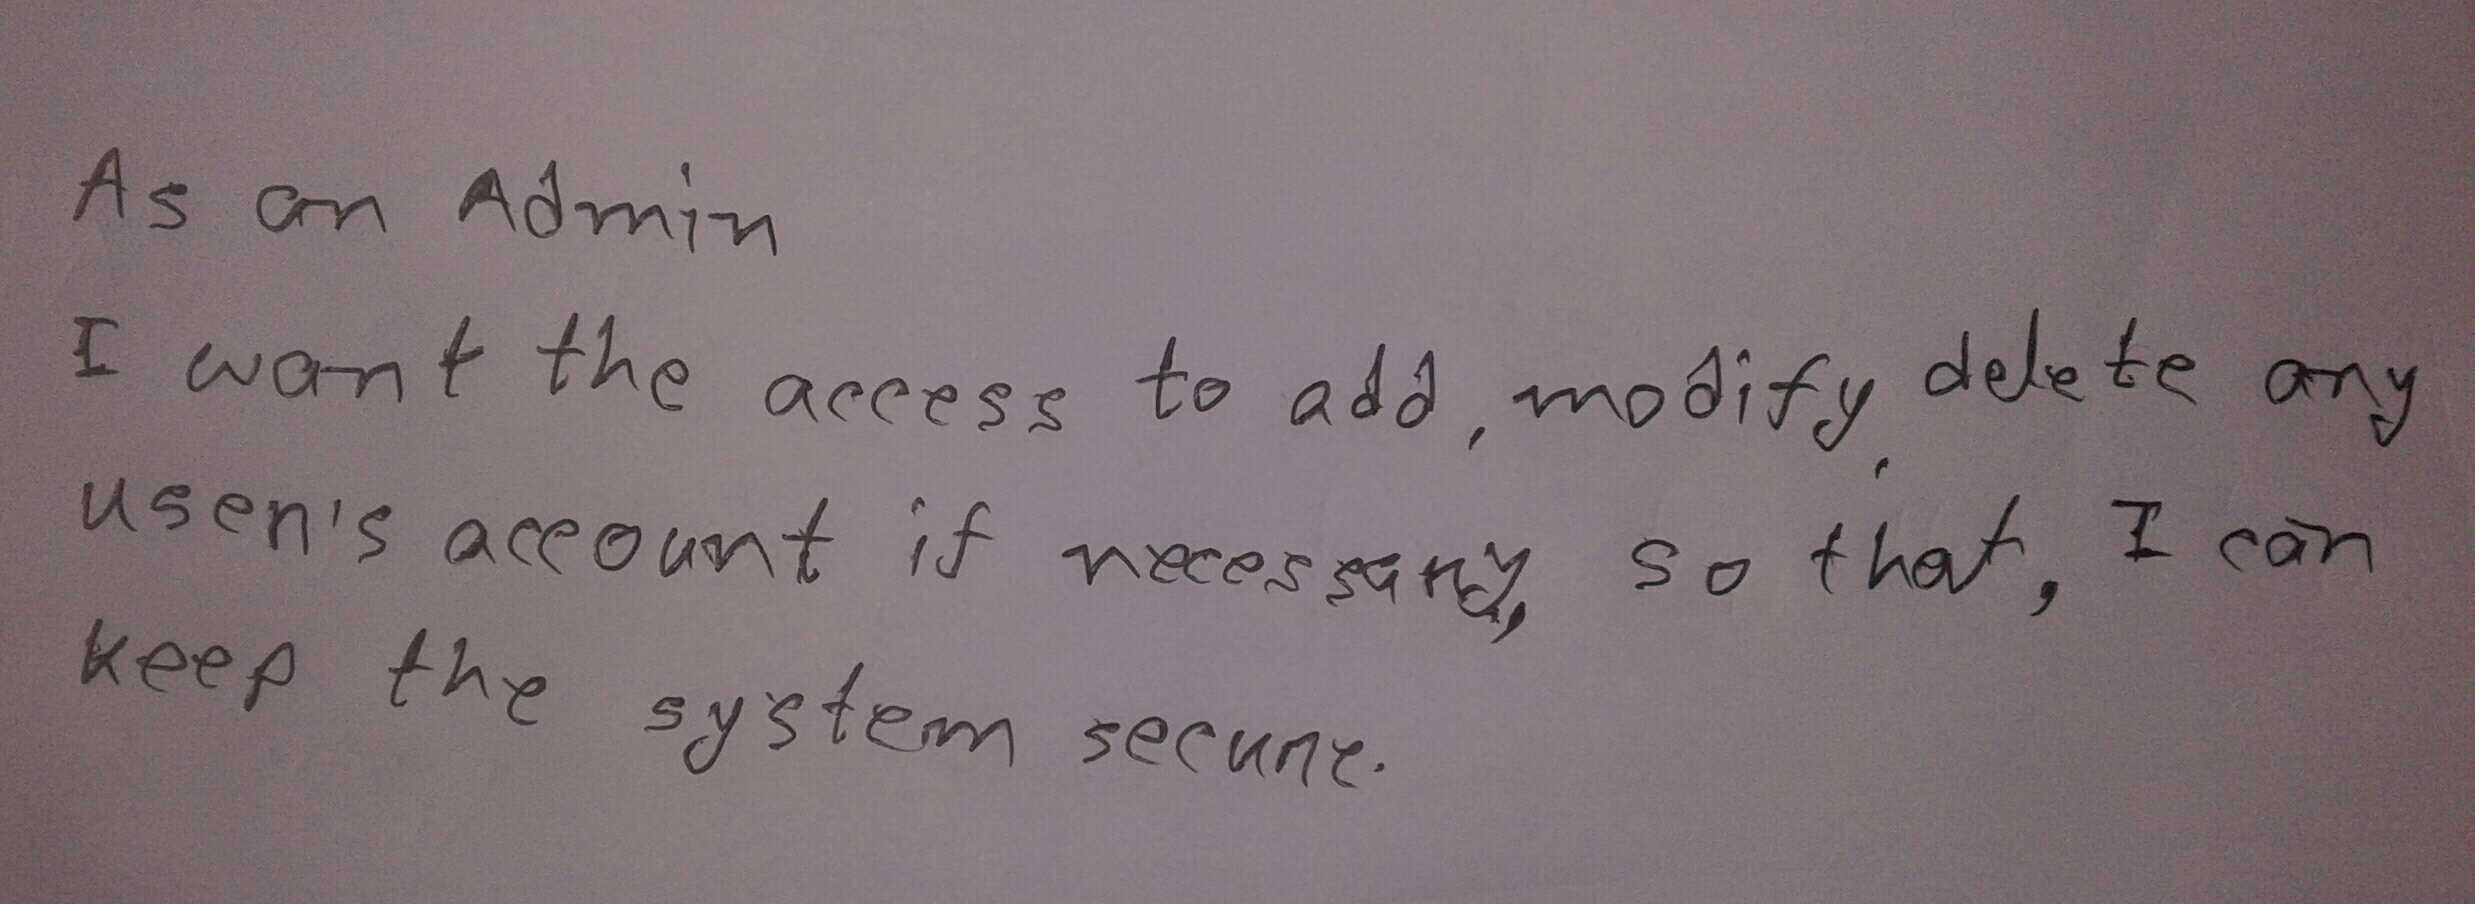 As an Admin
I want the access to add, modify, delete any
user's account if necessary, so that, I can
keep the system secure.